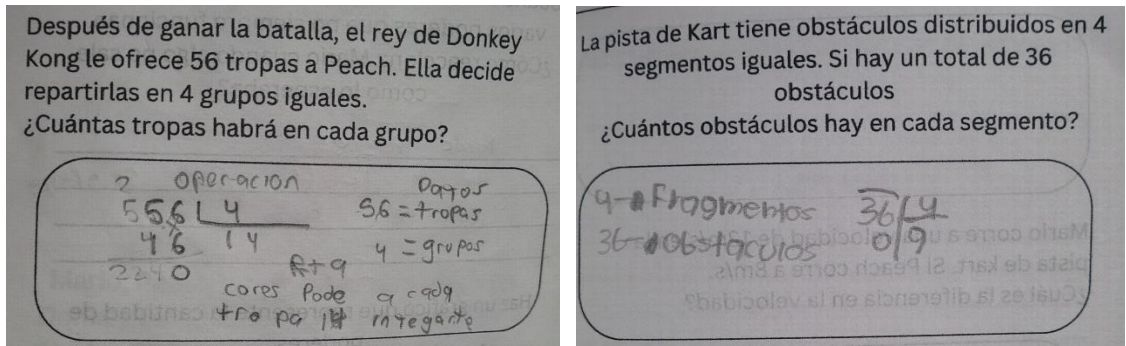 Después de ganar la batalla, el rey de Donkey
Kong le ofrece 56 tropas a Peach. Ella decide
repartirlas en 4 grupos iguales.
¿Cuántas tropas habrá en cada grupo?
2 operacion Datos
556 4 56 = tropas
46 14 4 = grupos
2240 R+a
cores Pode a cada
tro pa 14 integante
La pista de Kart tiene obstáculos distribuidos en 4
segmentos iguales. Si hay un total de 36
obstáculos
¿Cuántos obstáculos hay en cada segmento?
4→Fragmentos 36 4
36→obstaculos 0 9